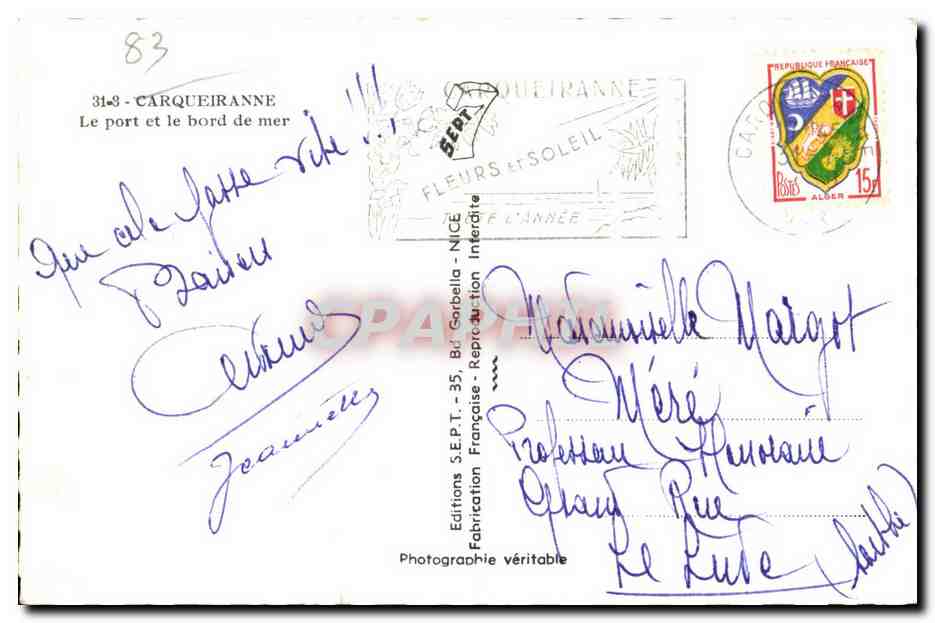 83
31-8 - CARQUEIRANNE
Le port et le bord de mer
Que cela passe vite !!!
Baisers
Jeannette
CARQUEIRANNE
FLEURS et SOLEIL
TOUTE L'ANNÉE
S.E.P.T.
REPUBLIQUE FRANÇAISE
POSTES
15F
ALGER
Editions S.E.P.T. - 35, Bd Gorbella - NICE
Fabrication Française - Reproduction Interdite
Photographie véritable
CPAPHIL
Mademoiselle Margot
Méré
Professeur Honoraire
Grand Rue
Le Lude (Sarthe)